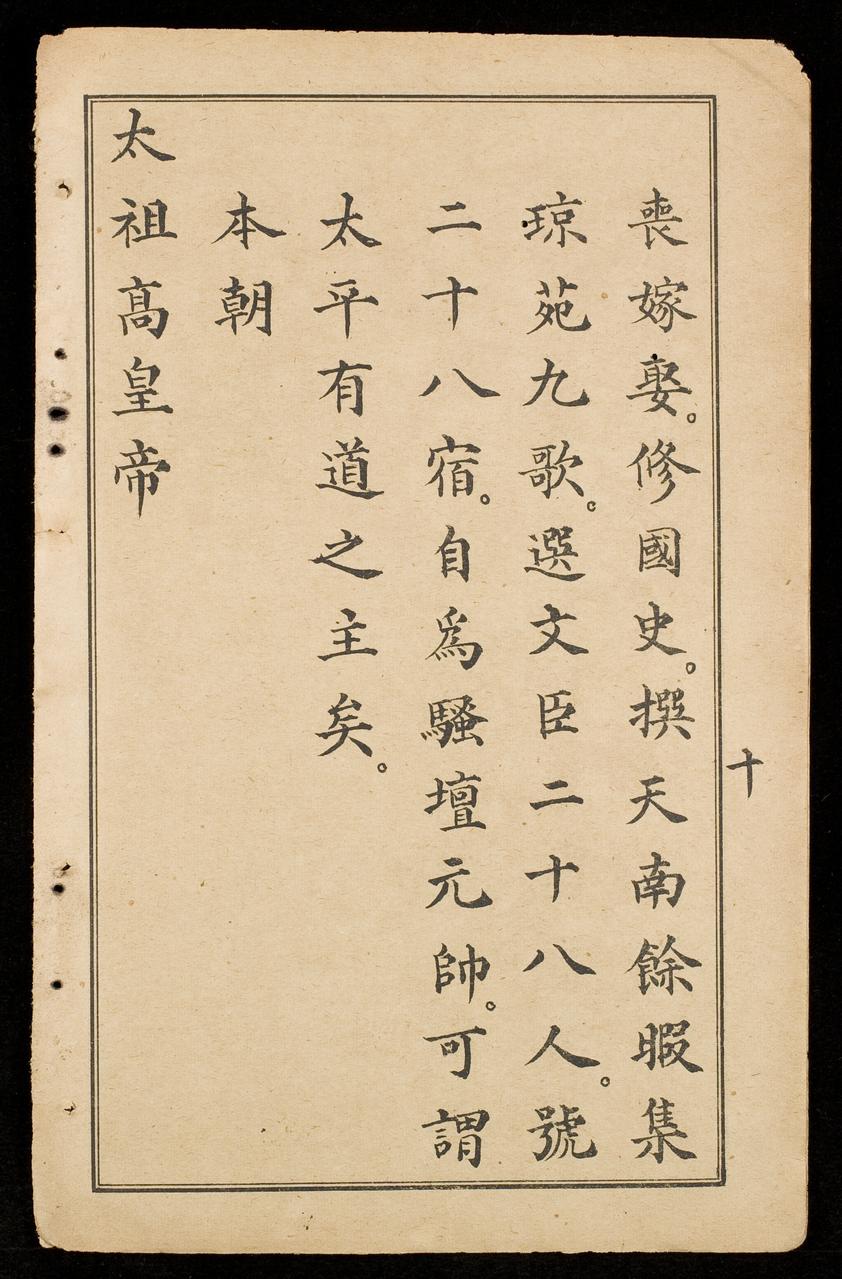 喪嫁娶。修國史。撰天南餘暇集
瓊苑九歌。選文臣二十八人。號
二十八宿。自爲騷壇元帥。可謂
太平有道之主矣。
本朝
太祖高皇帝
十